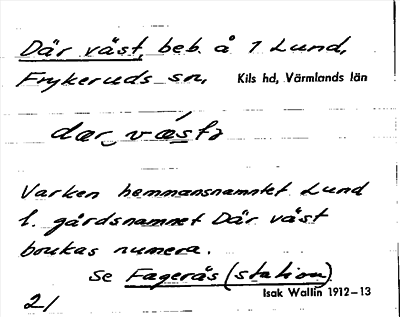 Där väst, beb. å 1 Lund,
Frykeruds sn, Kils hd, Värmlands län
Varken hemmansnamnet Lund
l. gårdsnamnet Där väst
brukas numera.
Se Fagerås (station)
Isak Wallin 1912–13
21